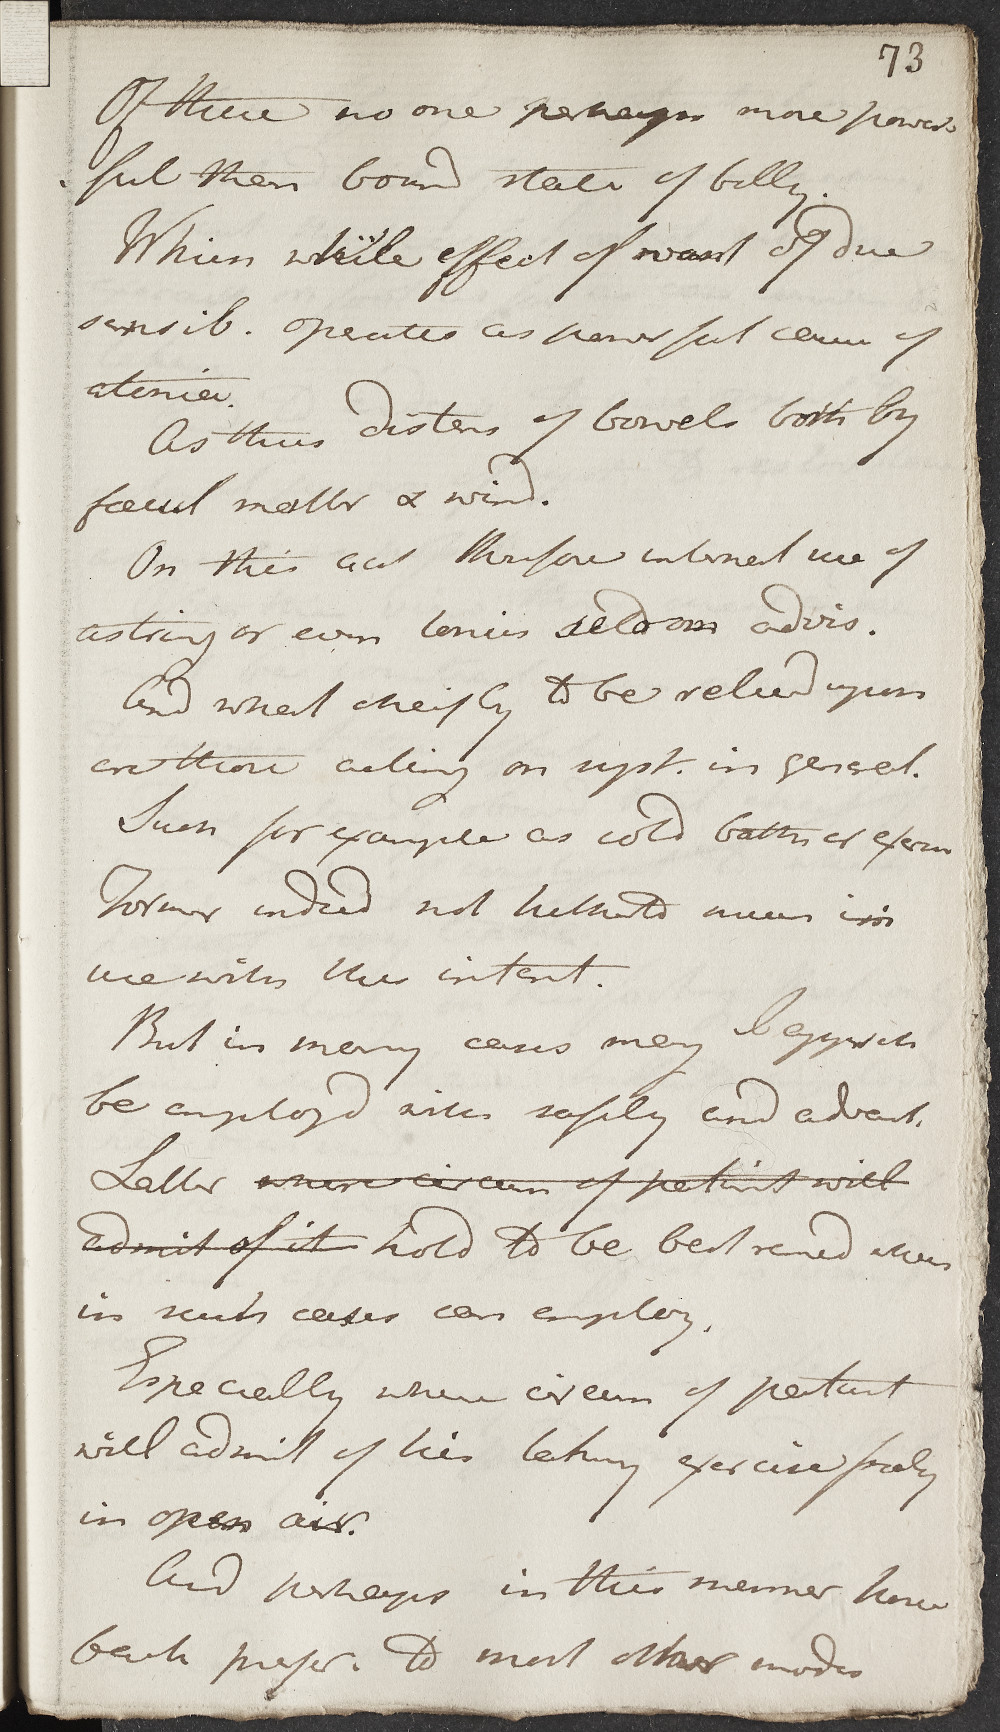 73
Of these no one perhaps more power-
ful than bound state of belly.
Which while effect of want of due
sensib. operates as powerful cause of
atonia.
As thus distens of bowels both by
faecal matter & wind.
On this acct therefore internal use of
astring or even tonics seldom advis.
And what cheifly to be relied upon
are those acting on syst. in general.
Such for example as cold bath or exerc
Former indeed not hitherto much in
use with this intent.
But in many cases may I appreh
be employd with safety and advant.
Latter where circum of patient will
admit of it hold to be best remed when
in such cases can employ.
Especially where circum of patient
will admit of his taking exercise freely
in open air.
And perhaps in this manner horse
back prefer. to most other modes